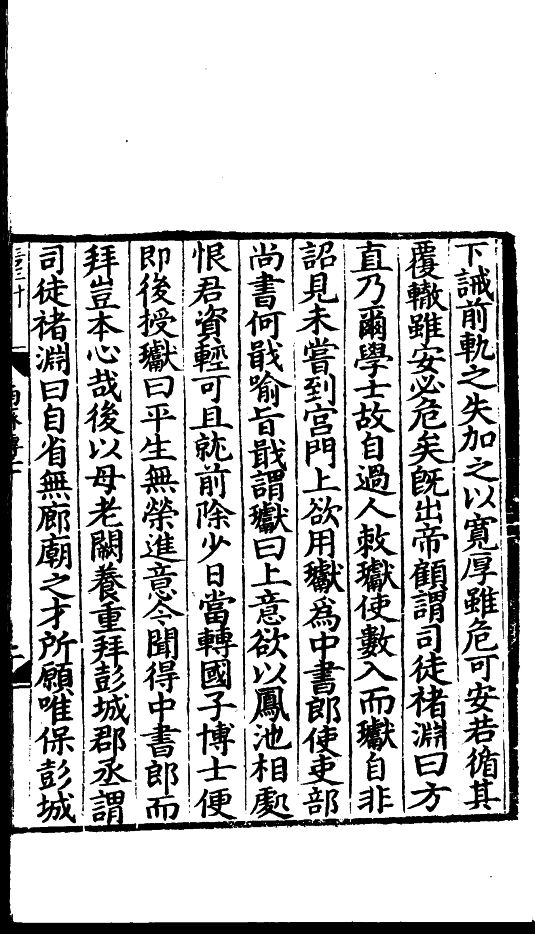 下誡前軌之失加之以寬厚雖危可安若循其
覆轍雖安必危矣旣出帝顧謂司徒褚淵曰方
直乃爾學士故自過人敕瓛使數入而瓛自非
詔見未嘗到宮門上欲用瓛爲中書郎使吏部
尚書何戢喻旨戢謂瓛曰上意欲以鳳池相處
恨君資輕可且就前除少日當轉國子博士便
即後授瓛曰平生無榮進意今聞得中書郎而
拜豈本心哉後以母老闕養重拜彭城郡丞謂
司徒褚淵曰自省無廊廟之才所願唯保彭城